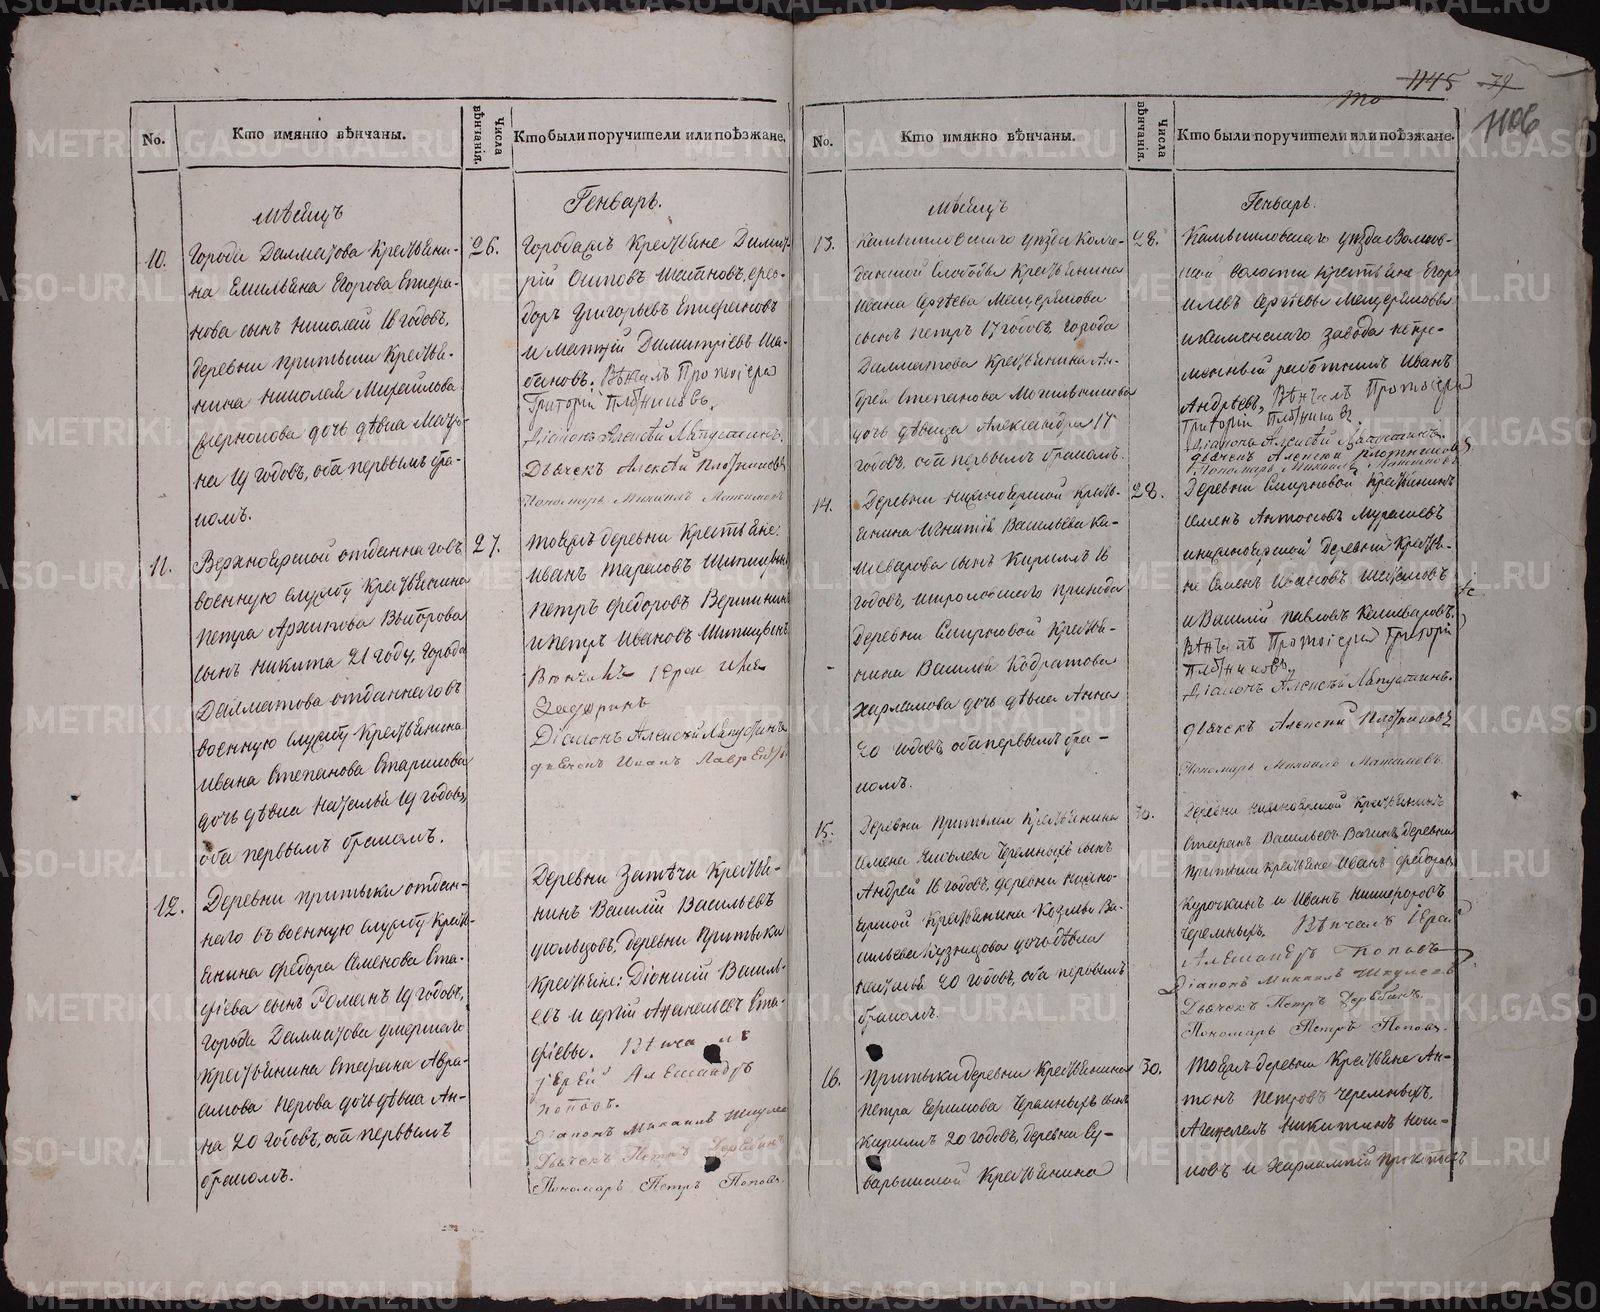 1145 79
1106
No.
Кто имянно вѣнчаны.
Числа вѣнчанія.
Кто были поручители или поѣзжане.
Мѣсяцъ
Генварь.
10.
Города Далматова Крестьяни-
на Емильяна Егорова Епифа-
нова сынъ Николай 18 годовъ,
деревни притыки Крестья-
нина Николая Михайлова
дочь дѣвица
на 19 годовъ, оба первымъ бра-
комъ.
26.
Городажъ Крестьяне Димит-
рій Осиповъ Ѳео-
доръ Григорьевъ Епифановъ
и Матѳій Димитріевъ Ша-
бановъ. Вѣнчалъ Протоіерей
Григорій Плотниковъ.
Діаконъ Алексѣй Лапустинъ.
Дьячекъ Алексѣй Плотниковъ
Пономарь Михаилъ
11.
Верхноярской отданнаго въ
военную службу Крестьянина
Петра Архипова Выборова
сынъ Никита 21 году, Города
Далматова отданнаго въ
военную службу Крестьянина
Ивана Степанова Старикова
дочь дѣвица Наталья 19 годовъ,
оба первымъ бракомъ.
27.
Тояжъ деревни Крестьяне:
Иванъ Тарасовъ Шипицынъ
Петръ Федоровъ Вершининъ
и Петръ Ивановъ Шипицынъ
Вѣнчалъ Іерей
Задоринъ
Діаконъ Алексѣй Лапустинъ
дьячекъ Иванъ Лаврентьевъ
12.
Деревни притыки отдан-
наго въ военную службу Крестья-
янина Федора Семенова Ста-
фіева сынъ Романъ 19 годовъ,
города Далматова умершаго
Крестьянина Стефана Авра-
амова Перова дочь дѣвица Ан-
на 20 годовъ, оба первымъ
бракомъ.
Деревни Затечи Крестья-
нинъ Василій Васильевъ
деревни Притыки
Крестьяне: Діонисій Василь-
евъ и Сергій Ста-
фіевы. Вѣнчалъ
Іерей Александръ
Поповъ.
Діаконъ Михаилъ
Дьячекъ Петръ
Пономарь Петръ Поповъ.
No.
Кто имянно вѣнчаны.
Числа вѣнчанія.
Кто были поручители или поѣзжане.
Мѣсяцъ
Генварь.
13.
Камышловскаго уѣзда Колче-
данской Слободы Крестьянина
Ивана Сергѣева Мещерякова
сынъ Петръ 17 годовъ, города
Далматова Крестьянина Ан-
дрея Степанова Могильникова
дочь дѣвица Александра 17
годовъ, оба первымъ бракомъ.
28.
Камышловскаго уѣзда Волков-
ской волости Крестьяне Егоръ
Сергѣевы Мещеряковы
и Каменскаго завода непре-
мѣнный работникъ Иванъ
Андреевъ. Вѣнчалъ Протоіерей
Григорій Плотниковъ.
Діаконъ Алексѣй Лапустинъ.
дьячекъ Алексѣй Плотниковъ
Пономарь Михаилъ
14.
Деревни нижноярской Кресть-
янина Игнатія Васильева Ка-
шеварова сынъ Кириллъ 18
годовъ, Широковскаго прихода
деревни Смирновой Крестья-
нина Василья Кодратова
Харламова дочь дѣвица Анна
20 годовъ, оба первымъ бра-
комъ.
28.
Деревни Смирновой Крестьянинъ
Семенъ Антоновъ Мурашевъ
и нижноярской деревни Крестья-
не Семенъ Ивановъ
и Василій Павловъ Кашеваровъ.
Вѣнчалъ Протоіерей Григорій
Плотниковъ.
Діаконъ Алексѣй Лапустинъ.
дьячекъ Алексѣй Плотниковъ
Пономарь Михаилъ
15.
Деревни притыки Крестьянина
Семена Яковлева Черемныхъ сынъ
Андрей 18 годовъ, деревни нижно-
ярской Крестьянина Козьмы Ва-
сильева Кузнецова дочь дѣвица
Наталья 20 годовъ, оба первымъ
бракомъ.
30.
Деревни нижноярской Крестьянинъ
Стефанъ Васильевъ деревни
притыки Крестьяне Иванъ Федоровъ
Курочкинъ и Иванъ Никифоровъ
Черемныхъ. Вѣнчалъ Іерей
Александръ Поповъ
Діаконъ Михаилъ
Дьячекъ Петръ
Пономарь Петръ Поповъ.
16.
Притыки деревни Крестьянина
Петра Ефимова Черемныхъ сынъ
Кириллъ 20 годовъ, деревни Су-
варышской Крестьянина
30.
Тояжъ деревни Крестьяне Ан-
тонъ Петровъ Черемныхъ,
Никитинъ
и Харлампій